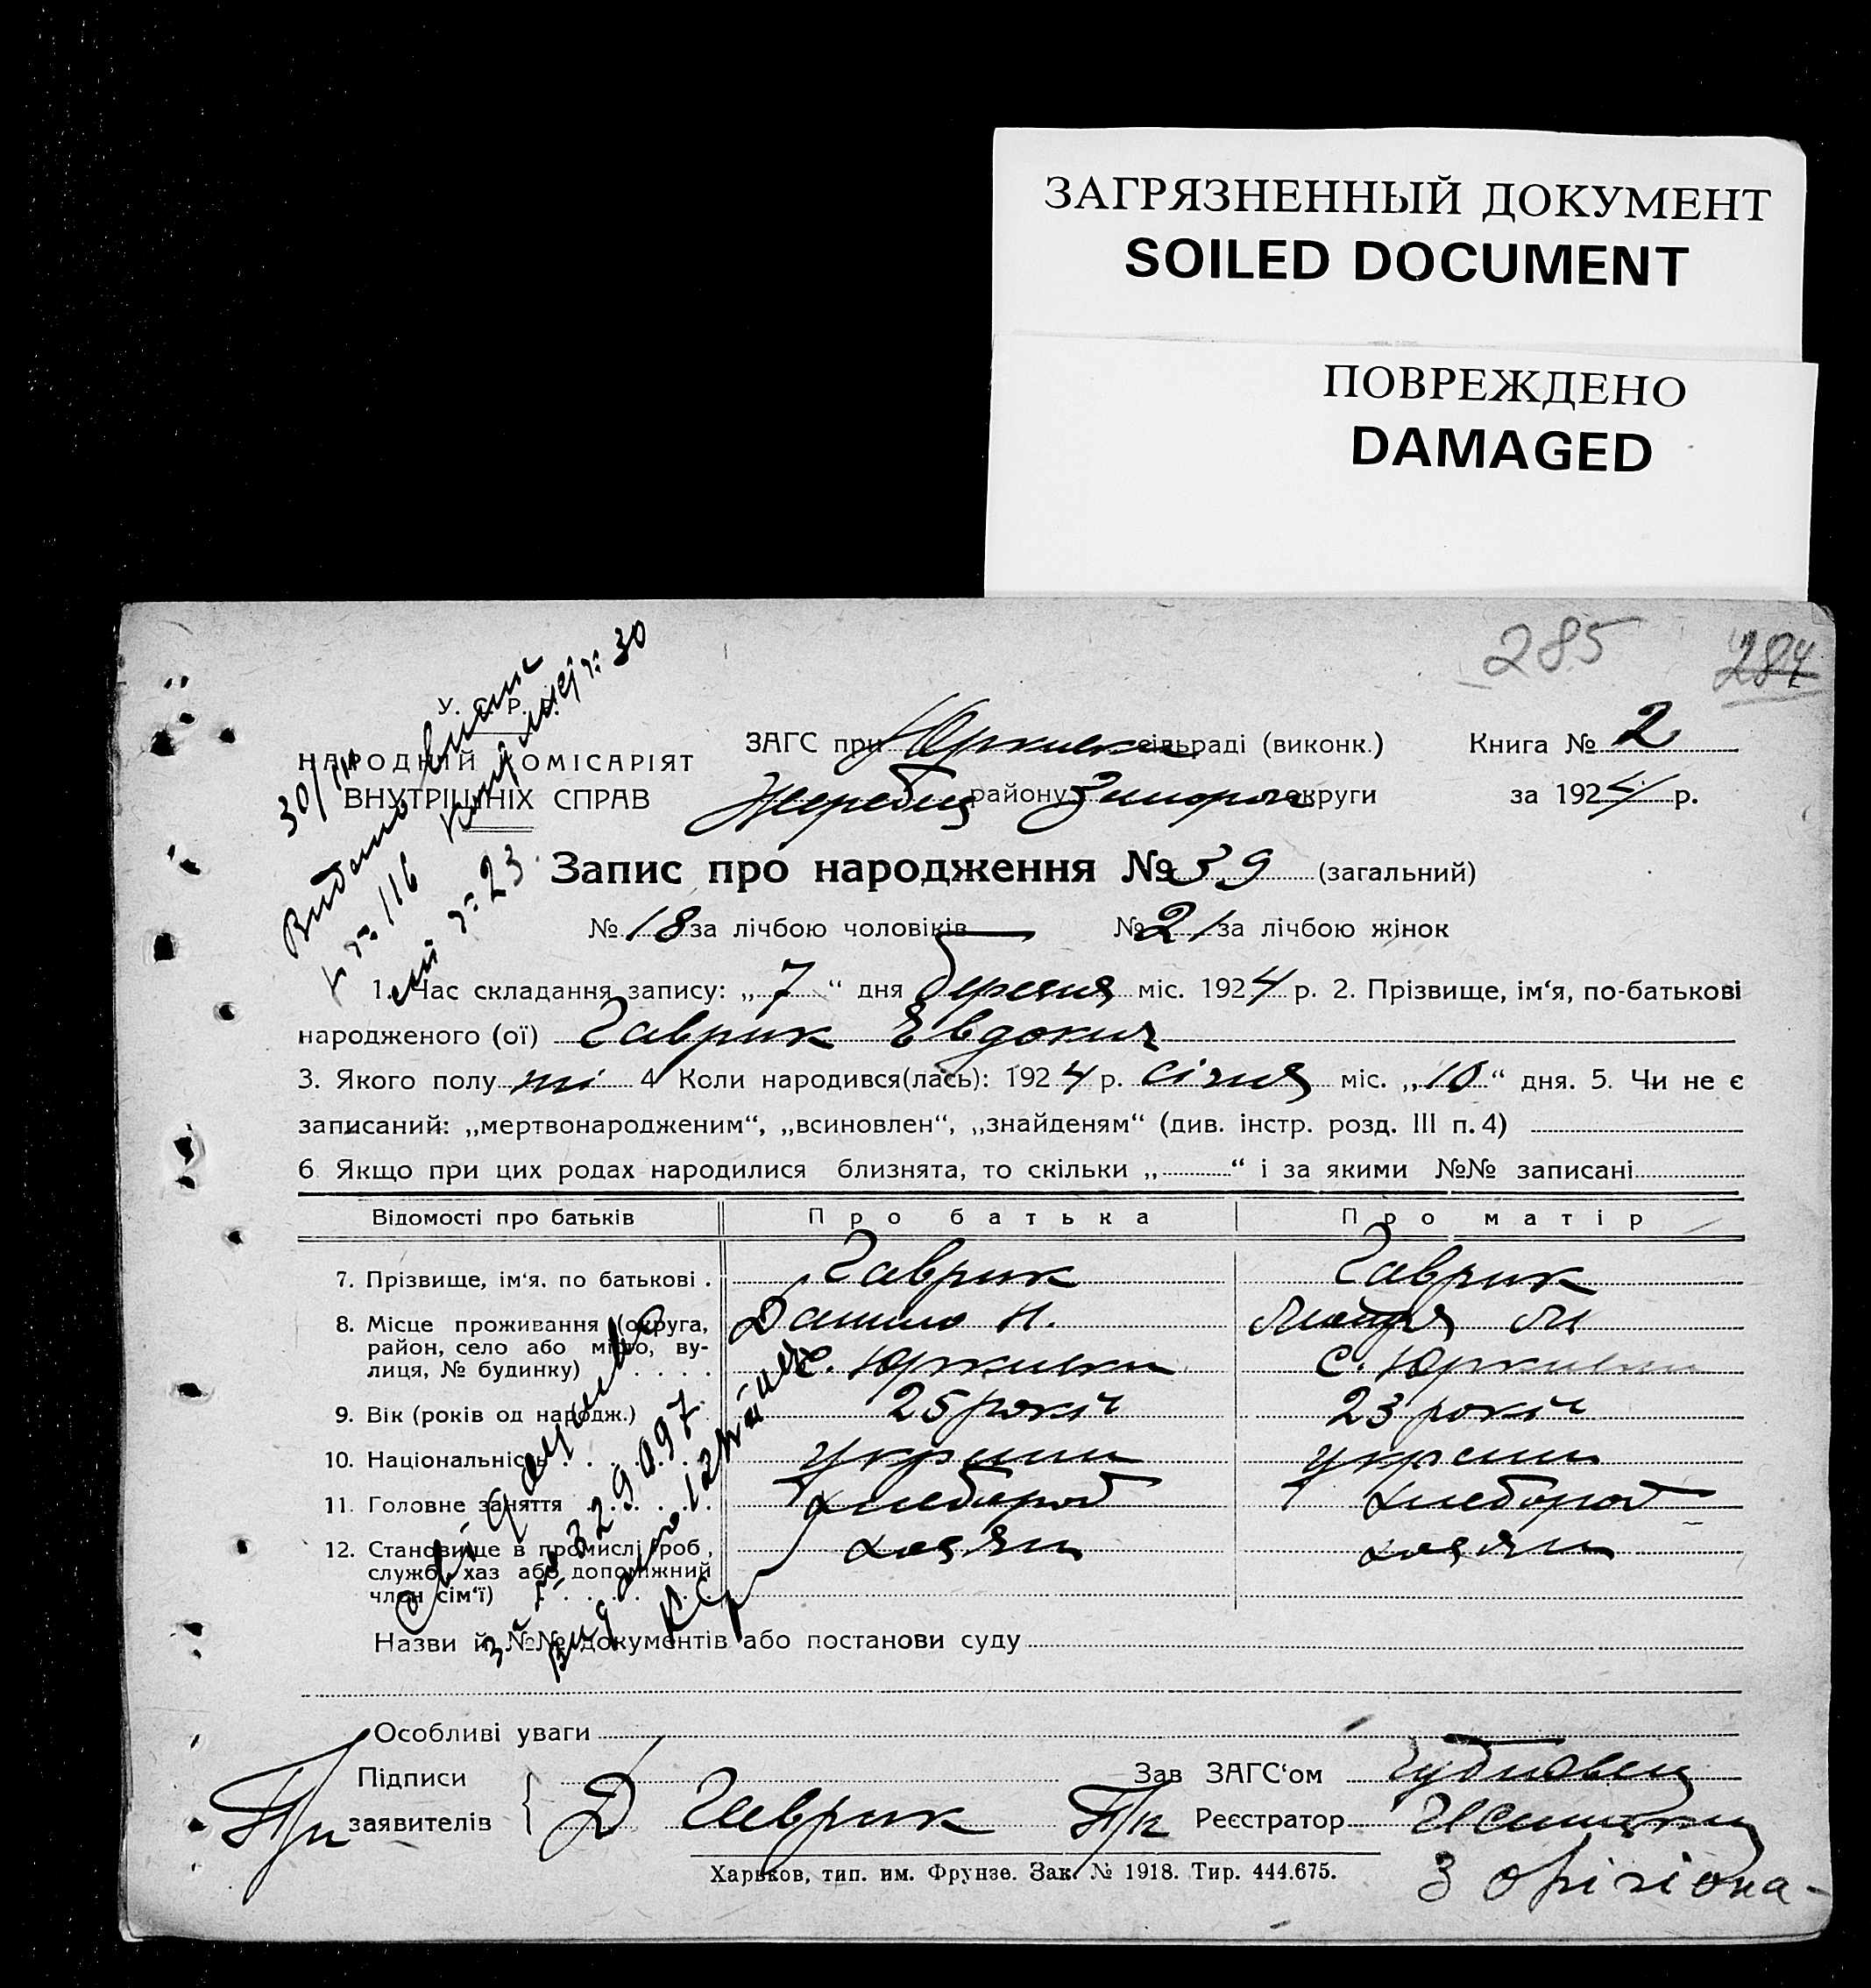 ЗАГРЯЗНЕННЫЙ ДОКУМЕНТ
SOILED DOCUMENT
ПОВРЕЖДЕНО
DAMAGED
285 284
У. С. Р. Р.
НАРОДНІЙ КОМІСАРІЯТ
ВНУТРІШНІХ СПРАВ
30/III
Видано
№ 116 № 30
№ 23
ЗАГС при Юркивка сільраді (виконк.) Книга № 2
Жеребец району Запорож округи за 1924 р.
Запис про народження № 39 (загальний)
№ 18 за лічбою чоловіків № 21 за лічбою жінок
1. Час складання запису: „7“ дня березня міс. 1924 р. 2. Прізвище, ім‘я, по-батькові
народженого (ої) Гаврик Евдокия
3. Якого полу жі 4 Коли народився(лась): 1924 р. січня міс. „10“ дня. 5. Чи не є
записаний: „мертвонародженим“, „всиновлен“, „знайденям“ (див. інстр. розд. III п. 4)
6. Якщо при цих родах народилися близнята, то скільки „ “ і за якими №№ записані
Відомості про батьків Про батька Про матір
7. Прізвище, ім‘я, по батькові . Гаврик Гаврик
Данило Н. М
8. Місце проживання (округа,
район, село або місто, ву-
лиця, № будинку) . . . . с. Юркивка с. Юркивка
9. Вік (років од народж.) 25 років 23 років
10. Національність . . . . украин украин
11. Головне заняття . . . . хлебороб хлебороб
12. Становище в промислі (роб,
служб, хаз або допоміжний
член сім‘ї) . . . . хозяин хозяин
329097
видано
Назви й №№ документів або постанови суду
Особливі уваги
Підписи
заявителів П/п Д Гаврик
Зав ЗАГС‘ом
П/п Реєстратор
Харьков, тип. им. Фрунзе. Зак. № 1918. Тир. 444.675.
З орігіна-